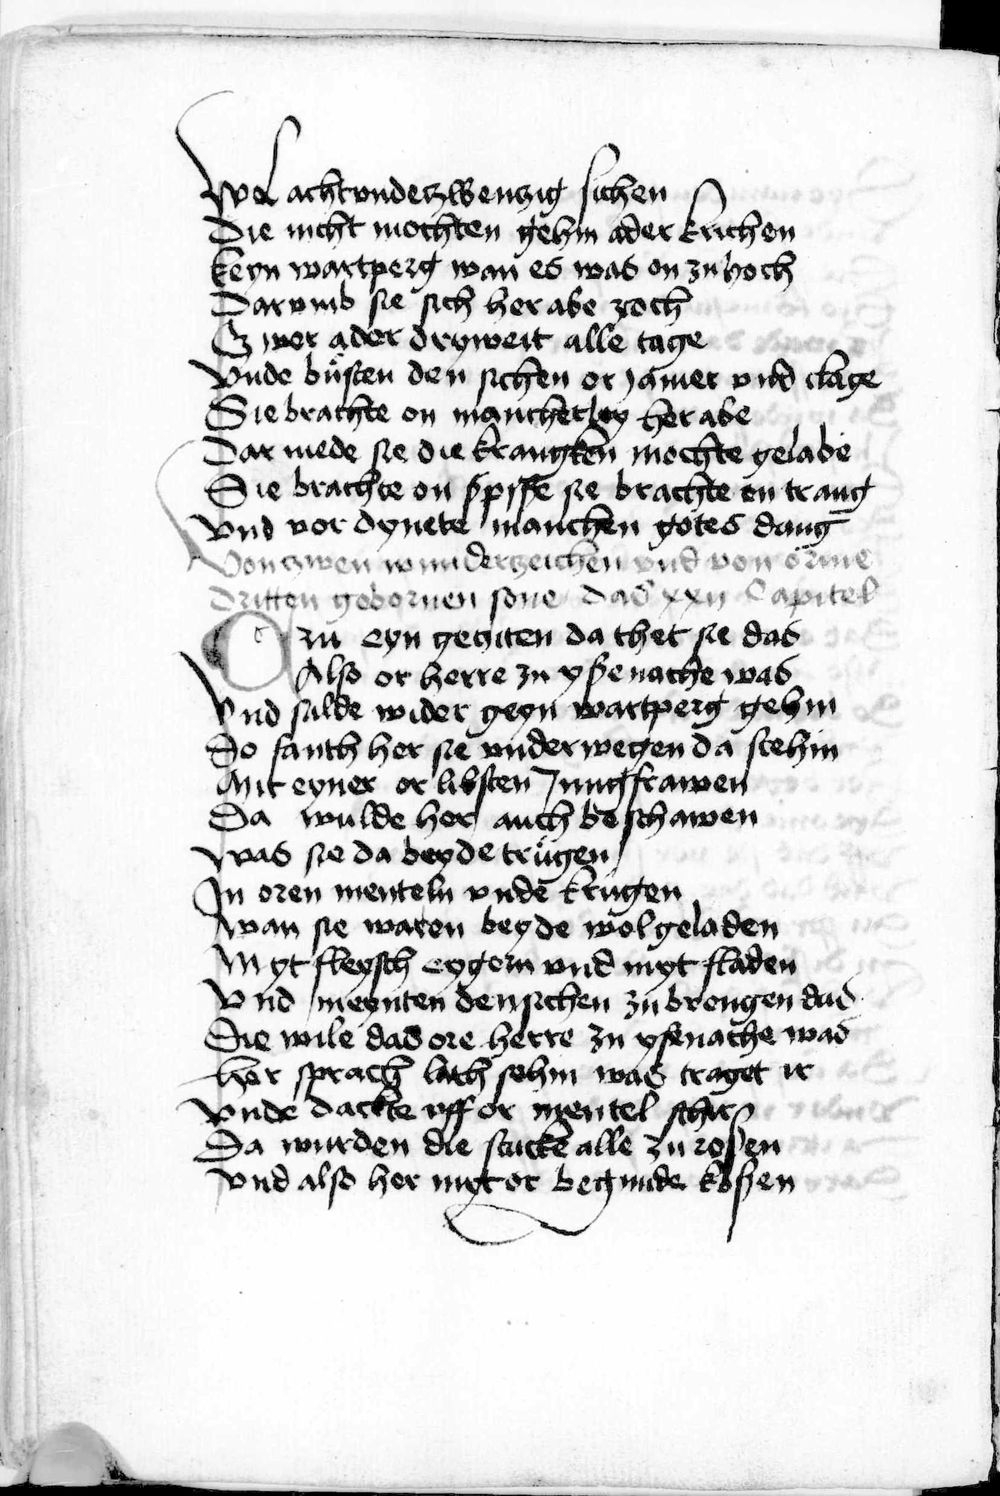 Wol achtvndezwenzig sichen
Die nicht mochten gehin ader krichen
keyn wartperg wan es was on zu hoch
Darvmb sie sich her abe zoch
Cz wer ader dryweit alle tage
Vnde büsten den sichen or jamer vnd clage
Sie brachte on mancherley her abe
Dar mede sie die krangken mochte gelabe
Sie brachte on spisse sie brachte on trang
Vnd vor dynete manchen gotes dang
Von zwen wunderzeichen vnd von örme
dritten gebornen sone das xxii Capitel
Czu eyn geziten da thet sie das
Also or herre zu yssenache was
Vnd sulde wider geyn wartperg gehin
Do fanth her sie vnderwegen da stehin
Mit eyner or libsten Jungfrawen
Da wulde her auch beschawen
Was sie da beyde trügen
In oren menteln vnde krugen
Wan sie waren beyde wol geladen
Myt fleysch eygern vnd myt fladen
Vnd meynten den sichen zu brengen das
Die wile das ore herre zu ysenache was
her sprach lath sehin was traget ir
Vnde dackte uff or mentel schir
Da wurden die stucke alle zu rosen
Vnd also her myt or begunde kosen